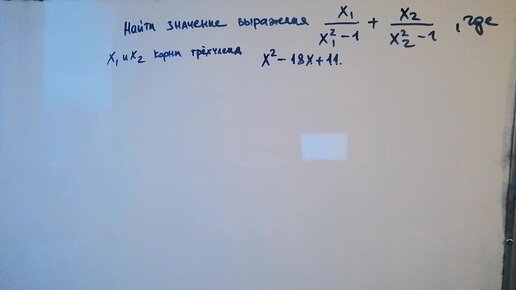 Найти значение выражения x₁/(x₁² − 1) + x₂/(x₂² − 1), где
x₁ и x₂ корни трёхчлена x² − 18x + 11.